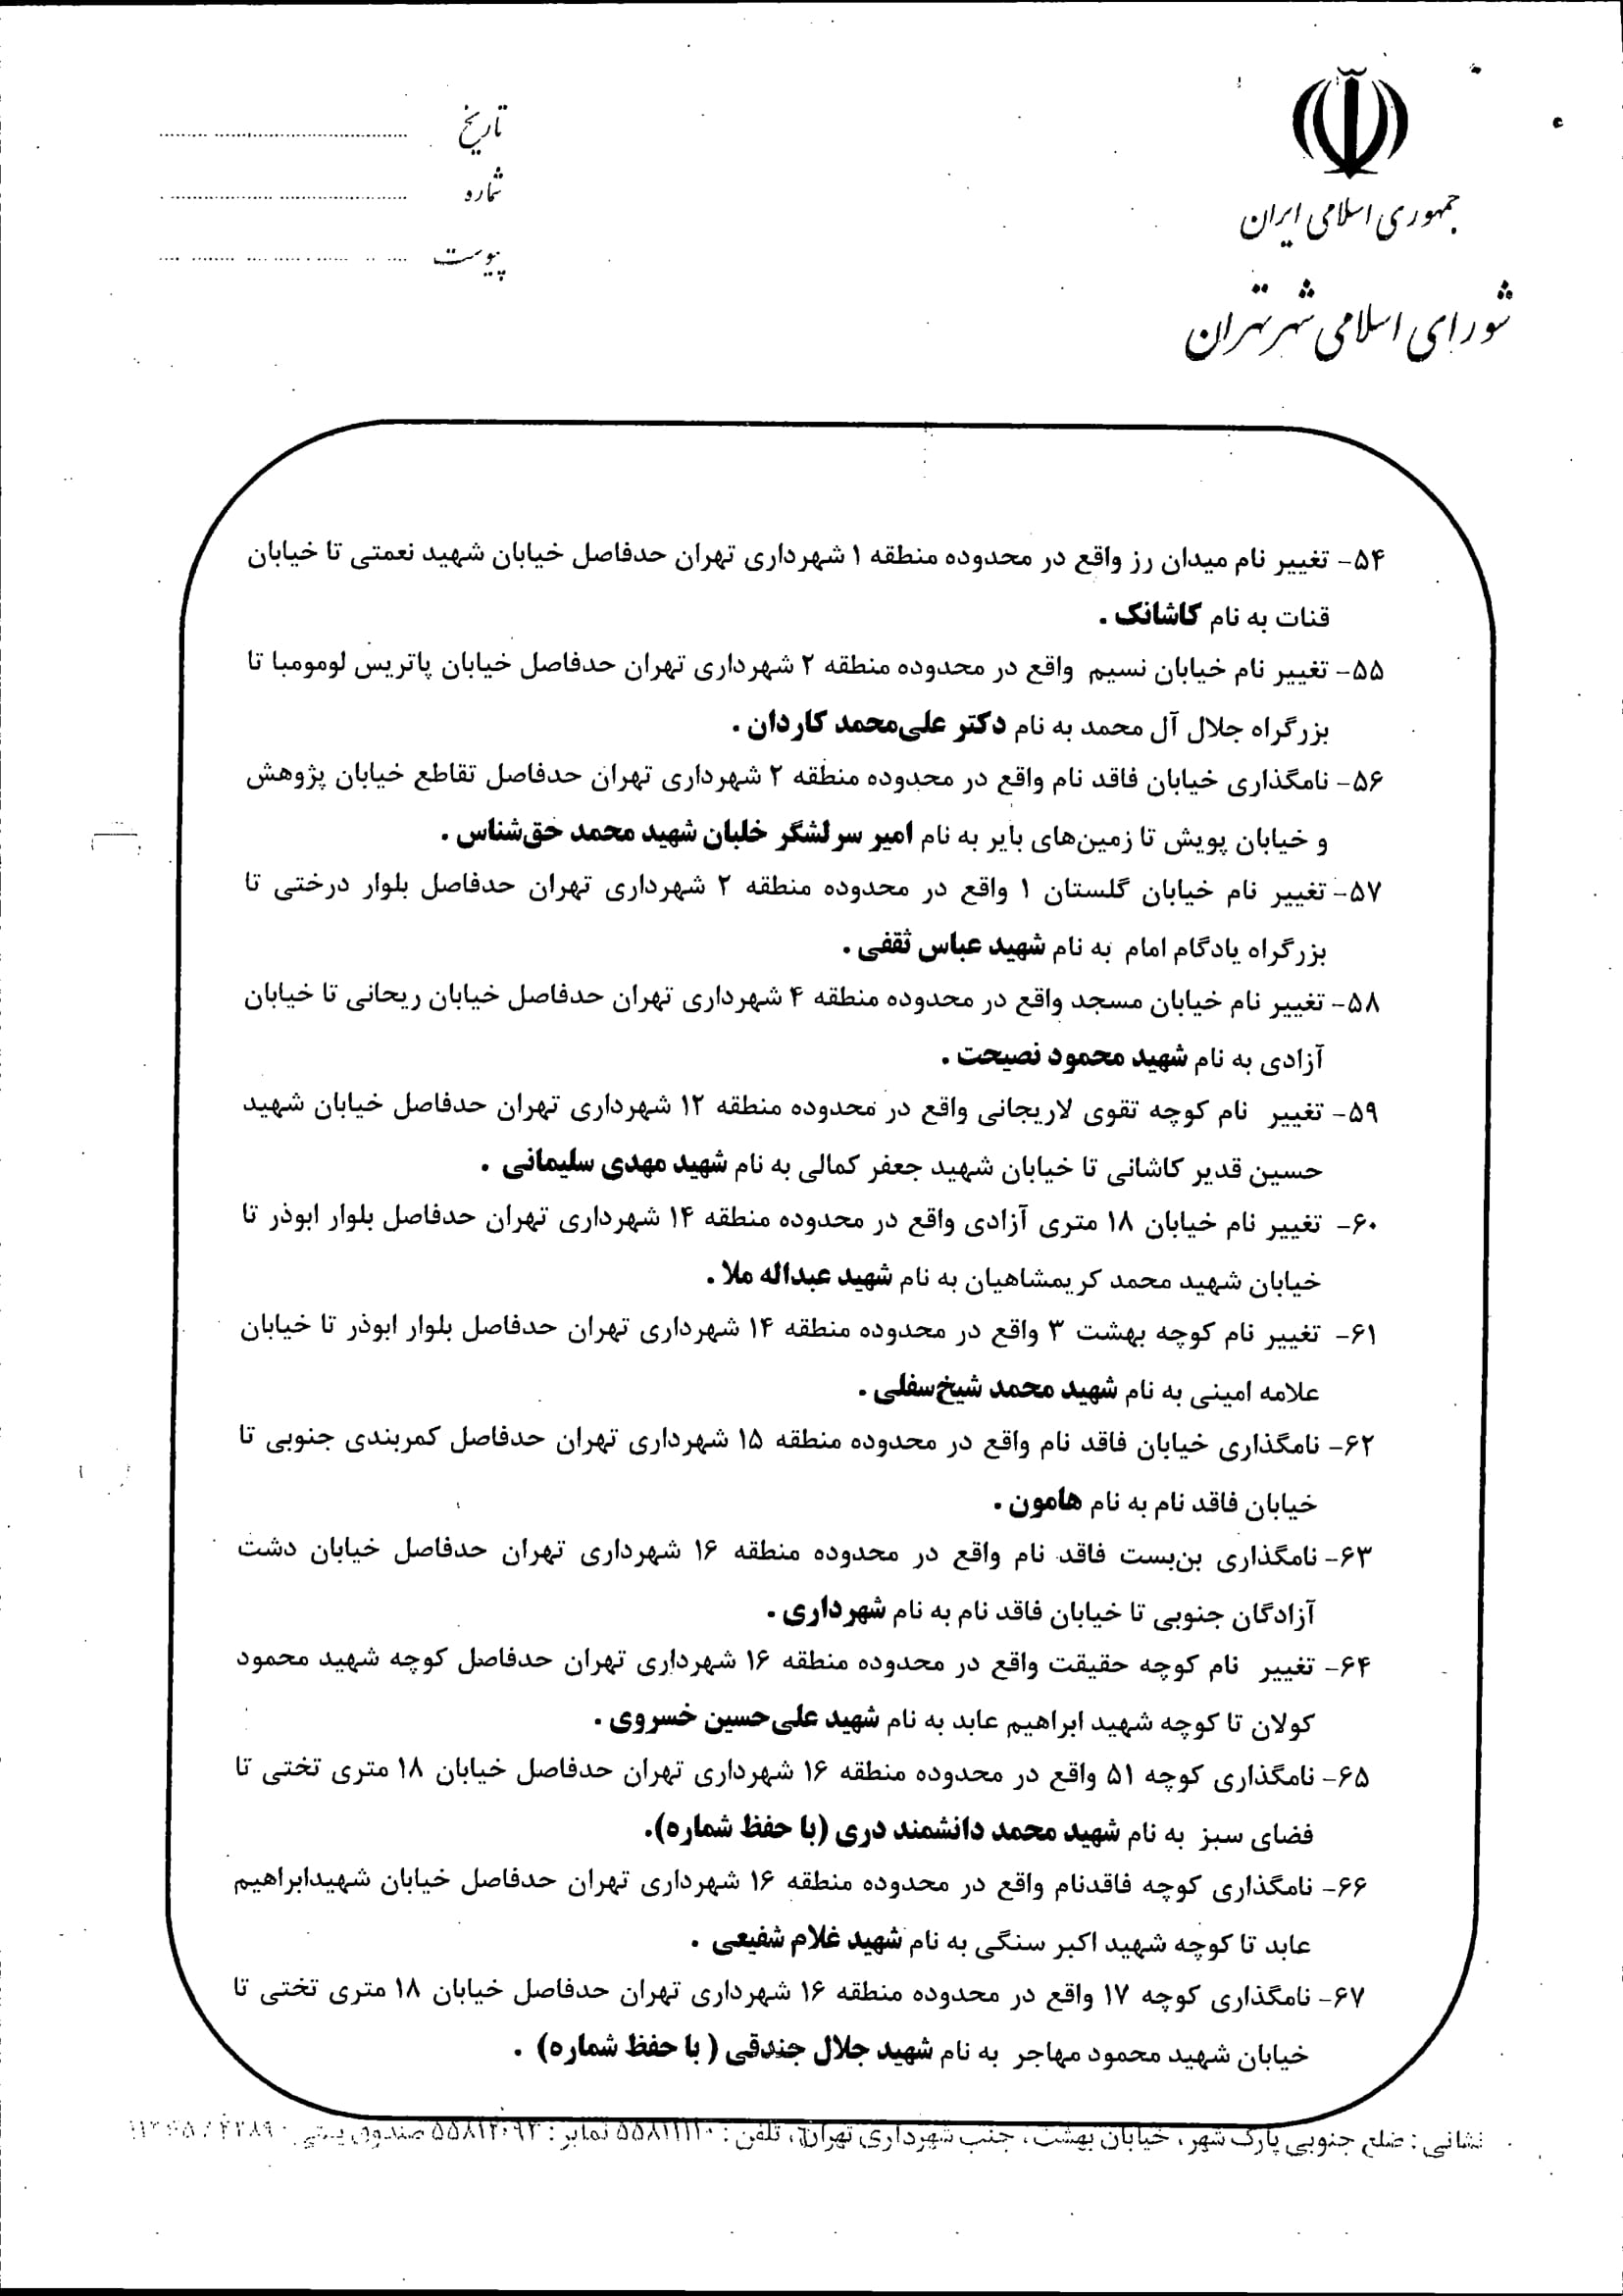 جمهوری اسلامی ایران
شورای اسلامی شهر تهران
تاریخ
شماره
پیوست
۵۴- تغییر نام میدان رز واقع در محدوده منطقه ۱ شهرداری تهران حدفاصل خیابان شهید نعمتی تا خیابان
قنات به نام کاشانک .
۵۵- تغییر نام خیابان نسیم واقع در محدوده منطقه ۲ شهرداری تهران حدفاصل خیابان پاتریس لومومبا تا
بزرگراه جلال آل محمد به نام دکتر علی‌محمد کاردان .
۵۶- نامگذاری خیابان فاقد نام واقع در محدوده منطقه ۲ شهرداری تهران حدفاصل تقاطع خیابان پژوهش
و خیابان پویش تا زمین‌های بایر به نام امیر سرلشگر خلبان شهید محمد حق‌شناس .
۵۷- تغییر نام خیابان گلستان ۱ واقع در محدوده منطقه ۲ شهرداری تهران حدفاصل بلوار درختی تا
بزرگراه یادگام امام به نام شهید عباس ثقفی .
۵۸- تغییر نام خیابان مسجد واقع در محدوده منطقه ۴ شهرداری تهران حدفاصل خیابان ریحانی تا خیابان
آزادی به نام شهید محمود نصیحت .
۵۹- تغییر نام کوچه تقوی لاریجانی واقع در محدوده منطقه ۱۲ شهرداری تهران حدفاصل خیابان شهید
حسین قدیر کاشانی تا خیابان شهید جعفر کمالی به نام شهید مهدی سلیمانی .
۶۰- تغییر نام خیابان ۱۸ متری آزادی واقع در محدوده منطقه ۱۴ شهرداری تهران حدفاصل بلوار ابوذر تا
خیابان شهید محمد کریمشاهیان به نام شهید عبداله ملا .
۶۱- تغییر نام کوچه بهشت ۳ واقع در محدوده منطقه ۱۴ شهرداری تهران حدفاصل بلوار ابوذر تا خیابان
علامه امینی به نام شهید محمد شیخ‌سفلی .
۶۲- نامگذاری خیابان فاقد نام واقع در محدوده منطقه ۱۵ شهرداری تهران حدفاصل کمربندی جنوبی تا
خیابان فاقد نام به نام هامون .
۶۳- نامگذاری بن‌بست فاقد نام واقع در محدوده منطقه ۱۶ شهرداری تهران حدفاصل خیابان دشت
آزادگان جنوبی تا خیابان فاقد نام به نام شهرداری .
۶۴- تغییر نام کوچه حقیقت واقع در محدوده منطقه ۱۶ شهرداری تهران حدفاصل کوچه شهید محمود
کولان تا کوچه شهید ابراهیم عابد به نام شهید علی‌حسین خسروی .
۶۵- نامگذاری کوچه ۵۱ واقع در محدوده منطقه ۱۶ شهرداری تهران حدفاصل خیابان ۱۸ متری تختی تا
فضای سبز به نام شهید محمد دانشمند دری (با حفظ شماره).
۶۶- نامگذاری کوچه فاقدنام واقع در محدوده منطقه ۱۶ شهرداری تهران حدفاصل خیابان شهیدابراهیم
عابد تا کوچه شهید اکبر سنگی به نام شهید غلام شفیعی .
۶۷- نامگذاری کوچه ۱۷ واقع در محدوده منطقه ۱۶ شهرداری تهران حدفاصل خیابان ۱۸ متری تختی تا
خیابان شهید محمود مهاجر به نام شهید جلال جندقی ( با حفظ شماره) .
نشانی : ضلع جنوبی پارک شهر، خیابان بهشت، جنب شهرداری تهران، تلفن : نمابر : صندوق پستی :